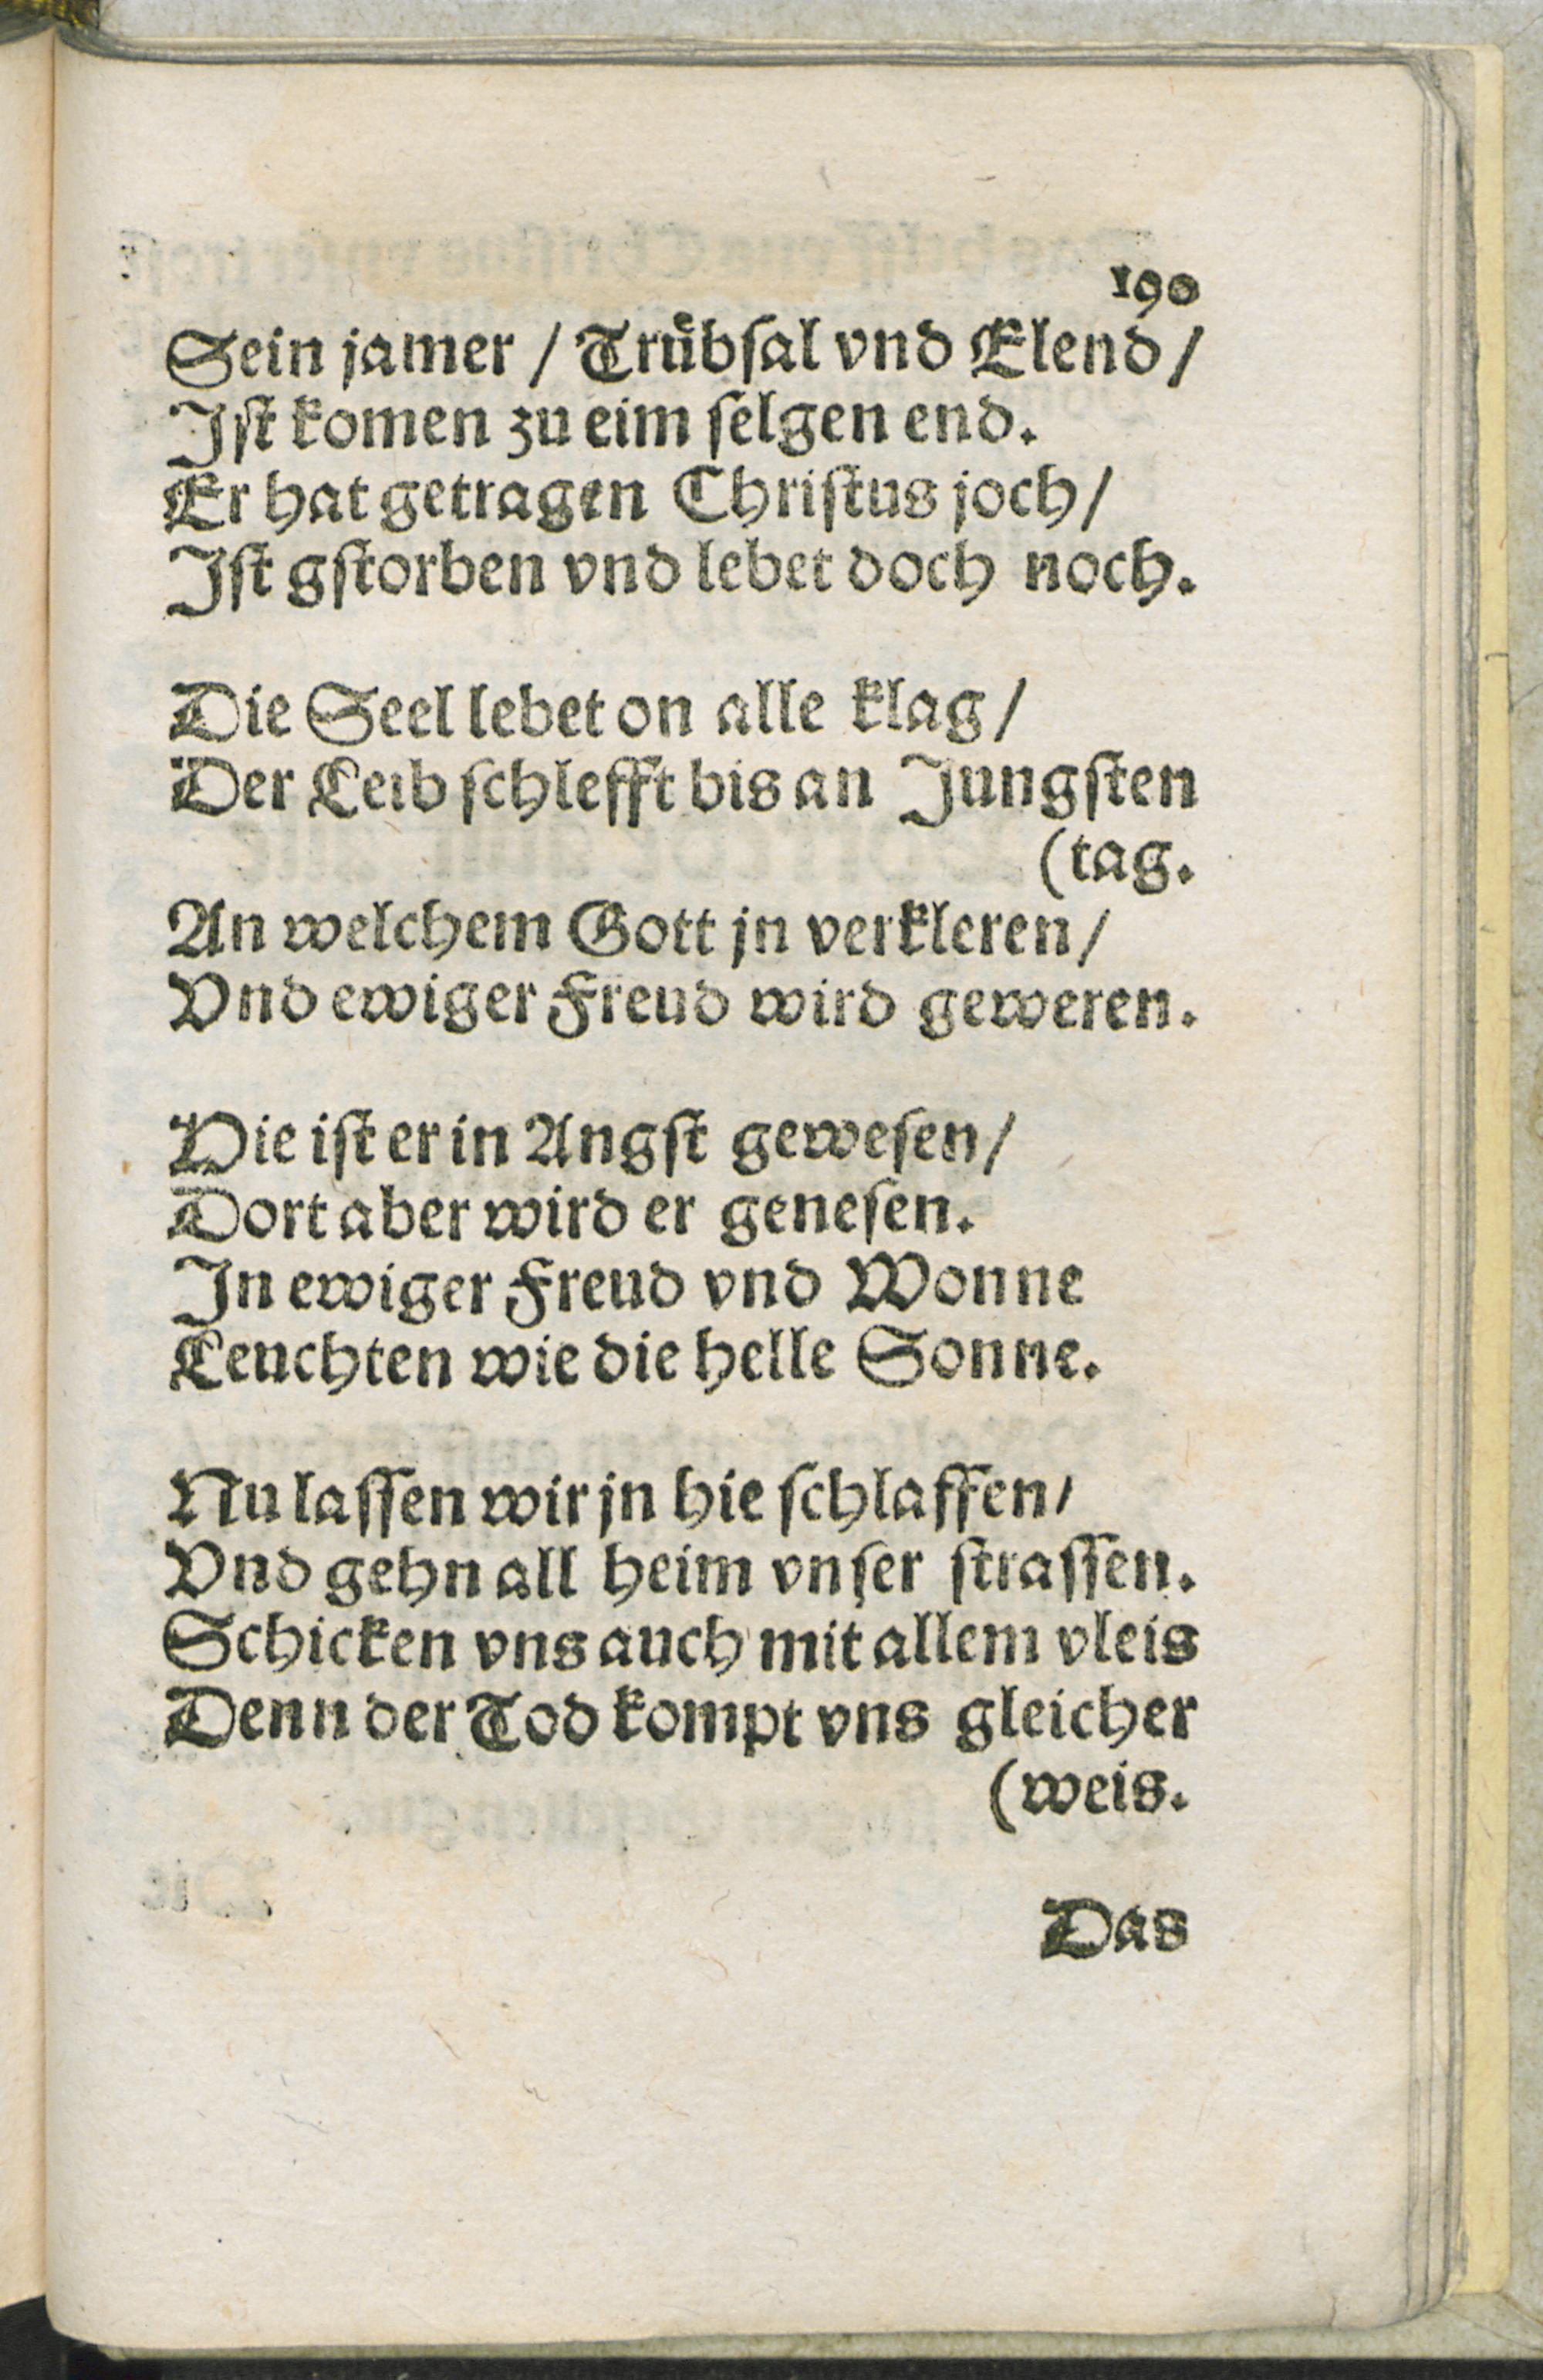 190
Sein jamer / Trübſal vnd Elend /
Jſt komen zu eim ſelgen end.
Er hat getragen Chriſtus joch /
Jſt gſtorben vnd lebet doch noch.
Die Seel lebet on alle klag /
Der Leib ſchlefft bis an Jungſten
(tag.
An welchem Gott jn verkleren /
Vnd ewiger Freud wird geweren.
Hie iſt er in Angſt geweſen /
Dort aber wird er geneſen.
Jn ewiger Freud vnd Wonne
Leuchten wie die helle Sonne.
Nu laſſen wir jn hie ſchlaffen /
Vnd gehn all heim vnſer ſtraſſen.
Schicken vns auch mit allem vleis
Denn der Tod kompt vns gleicher
(weis.
Das